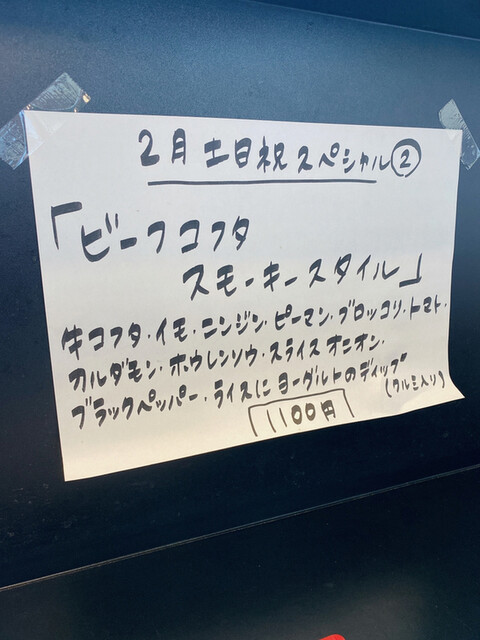 2月 土日祝 スペシャル②
「ビーフコフタ
スモーキースタイル」
牛コフタ・イモ・ニンジン・ピーマン・ブロッコリ・トマト・
カルダモン・ホウレンソウ・スライスオニオン・
ブラックペッパー・ライスにヨーグルトのディップ
(クルミ入り)
1100円